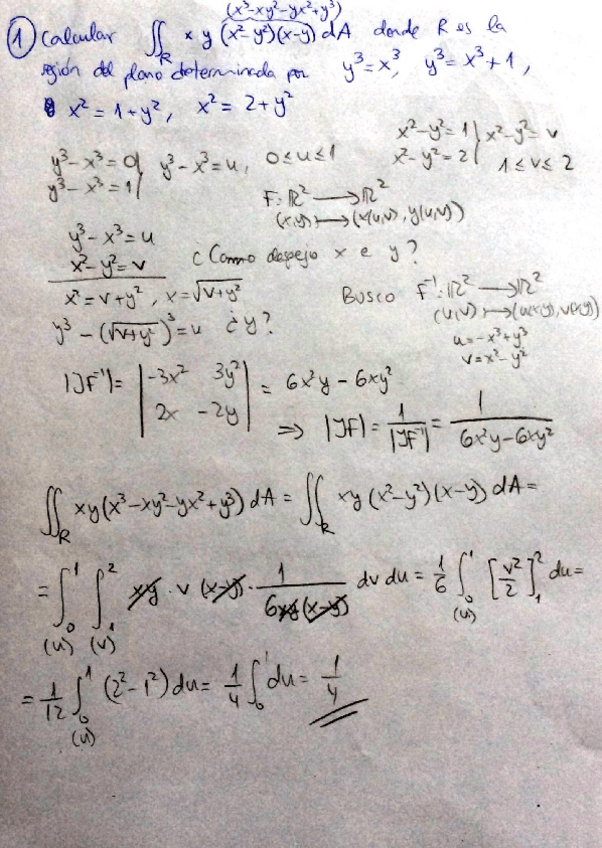 (x³-xy²-yx²+y³)
① Calcular ∬_R x y (x²-y²)(x-y) dA donde R es la
región del plano determinada por y³=x³, y³=x³+1,
x²=1+y², x²=2+y²
y³-x³=0
y³-x³=1 } y³-x³=u, 0≤u≤1
x²-y²=1
x²-y²=2 } x²-y²=v
1≤v≤2
F:ℝ² → ℝ²
(x,y) ↦ (x(u,v), y(u,v))
y³-x³=u
x²-y²=v
¿Como despejo x e y?
x²=v+y², x=√(v+y²)
y³-(√(v+y²))³=u ¿y?
Busco F⁻¹:ℝ² → ℝ²
(u,v) ↦ (u(x,y), v(x,y))
u=-x³+y³
v=x²-y²
|JF⁻¹|= | -3x² 3y² |
| 2x -2y | = 6x²y-6xy²
⇒ |JF| = 1/|JF⁻¹| = 1/(6x²y-6xy²)
∬_R xy(x³-xy²-yx²+y³) dA = ∬_R xy(x²-y²)(x-y) dA =
= ∫₀¹ ∫₁² xy · v (x-y) · 1/(6xy(x-y)) dv du = 1/6 ∫₀¹ [v²/2]₁² du =
(u) (v) (u)
= 1/12 ∫₀¹ (2²-1²) du = 1/4 ∫₀¹ du = 1/4
(u)